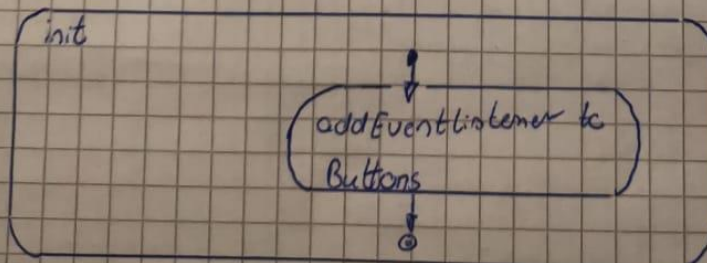 init
addEventListener to
Buttons